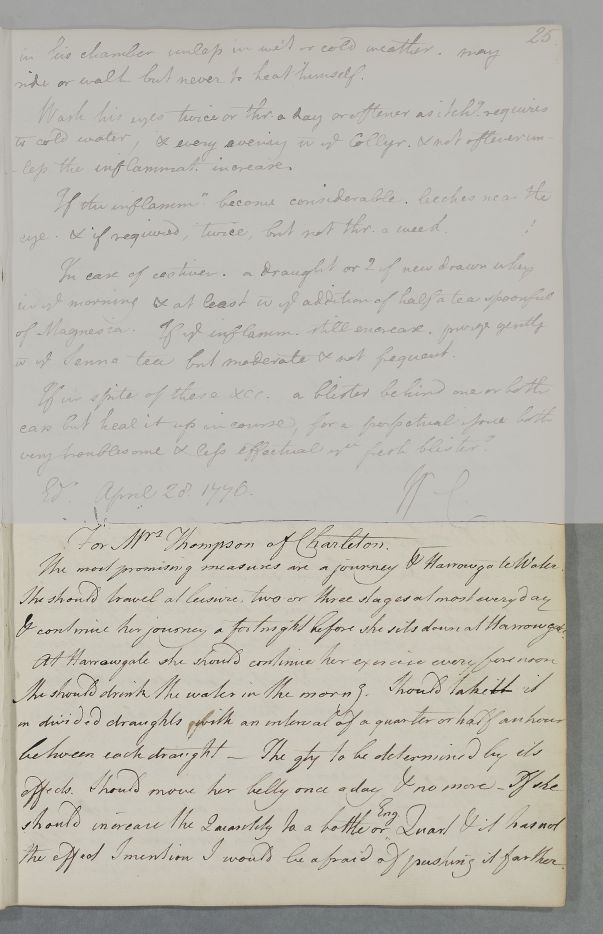 25
in his chamber unless in wet or cold weather. may
ride or walk but never to heat himself.
Wash his eyes twice or thr. a day or oftener as itchg. requires
wt cold water, & every evening w yt Collyr. & not oftener un-
-less the inflammat. increase.
If the inflammn. become considerable. leeches near the
eye. & if required, twice, but not thr. a week.
In case of costiven. a draught or 2 of new drawn whey
in yt morning & at least w yt addition of half a tea spoonful
of Magnesia. If yt inflamm. still encrease. purge gently
w yt Senna tea but moderate & not frequent.
If in spite of these &cc. a blister behind one or both
ears but heal it up in course, for a perpetual issue both
very troublesome & less effectual yn fresh blisters.
Edr. April 28 1776. W C
For Mrs Thompson of Charleton.
The most promising measures are a journey & Harrowgate Water.
She should travel at leisure, two or three stages at most every day
& continue her journey a fortnight before she sits down at Harrowgate.
At Harrowgate she should continue her exercise every forenoon
She should drink the water in the morng. Should take it
in divided draughts with an interval of a quarter or half an hour
between each draught — The qty to be determined by its
effects. Should move her belly once a day & no more – If she
should increase the Quantity to a bottle or Eng. Quart & it has not
the effect I mention I would be afraid of pushing it farther.